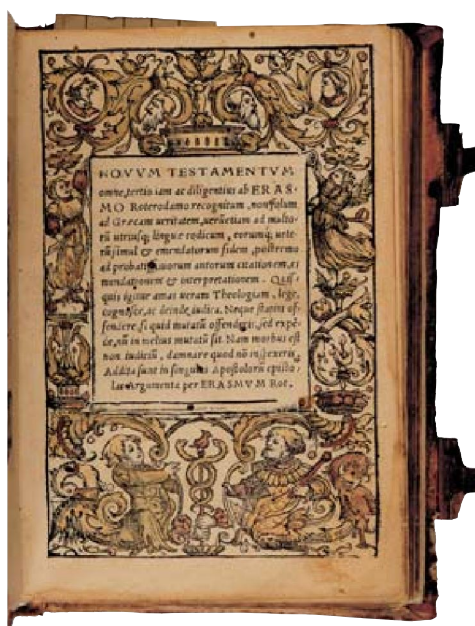 NOVVM TESTAMENTVM
omne, tertio iam ac diligentius ab ERAS-
MO Roterodamo recognitum, non solum
ad Græcam ueritatem, uerũetiam ad multo-
rũ utriusq; linguæ codicum, eorumq; uete-
rũ simul & emendatorum fidem, postremo
ad probatissimorum autorum citationem, e-
mendationem & interpretationem. Quis-
quis igitur amas ueram Theologiam, lege,
cognosce, ac deinde iudica. Neque statim of-
fendere, si quid mutatũ offenderis, sed expē-
de, nũ in melius mutatũ sit. Nam morbus est
non iudiciũ, damnare quod nõ inspexeris.
Addita sunt in singulas Apostolorũ episto-
las Argumenta per ERASMVM Rot.